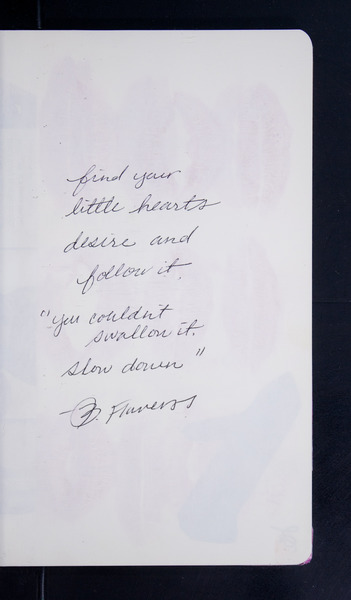 find your
little hearts
desire and
follow it.
"you couldn't
swallow it.
slow down"
B. Flowers